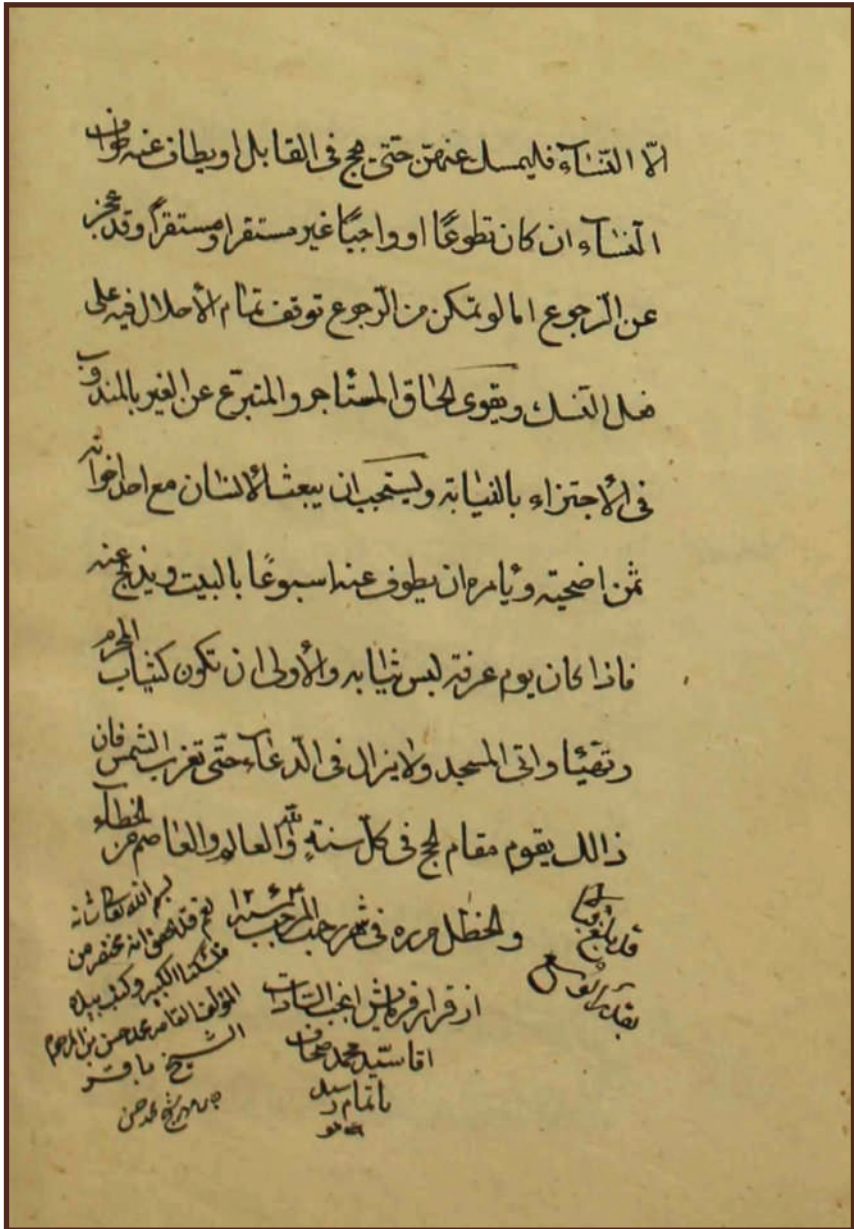 الّا النّسآء فليمسك عنهنّ حتّى يحج فى القابل او يطاف عنه طواف
النّسآء ان كان تطوعًا او واجبًا غير مستقر او مستقرًا وقد عجز
عن الرّجوع اما لو تمكن من الرّجوع توقف تمام الأحلال فيه على
فعل النّسك ويقوى الحاق المستأجر والمتبرّع عن الغير بالمندوب
فى الأجتزاء بالنيابة ويستحب ان يبعث الأنسان مع احد اخوانه
ثمن اضحيته ويأمره ان يطوف عنه اسبوعًا بالبيت ويذبح عنه
فاذا كان يوم عرفة لبس ثيابه والأولى ان تكون كثياب المحرم
وتهيّأ واتى المسجد ولا يزال فى الدّعآء حتّى تغرب الشمس فان
ذالك يقوم مقام الحج فى كلّ سنةٍ والله العالم والعاصم من الخطآء
والخطل حرره فى شهر رجب المرجب سنه ١٢۶٣
از قرار فرمايش اغب السّادات
اقا سيّد محمد صحاف
باتمام رسيد
قد بلغ قبالا
بقدر الوسع
بسم الله تعالى شأنه
نعم قد لاحظ انه مختصر من
منسكنا الكبير وكتب بيده
المؤلف القاصر محمد حسن بن المرحوم
الشيخ باقر